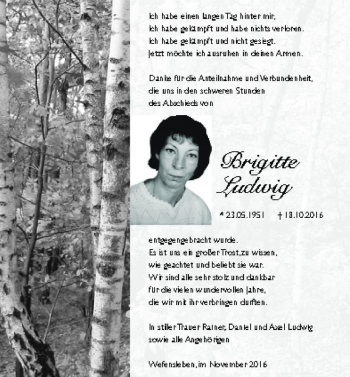 Ich habe einen langen Tag hinter mir,
Ich habe gekämpft und habe nichts verloren.
Ich habe gekämpft und nicht gesiegt.
Jetzt möchte ich ausruhen in deinen Armen.
Danke für die Anteilnahme und Verbundenheit,
die uns in den schweren Stunden
des Abschieds von
Brigitte
Ludwig
* 23.05.1951 † 18.10.2016
entgegengebracht wurde.
Es ist uns ein großer Trost, zu wissen,
wie geachtet und beliebt sie war.
Wir sind alle sehr stolz und dankbar
für die vielen wundervollen Jahre,
die wir mit ihr verbringen durften.
In stiller Trauer Rainer, Daniel und Axel Ludwig
sowie alle Angehörigen
Wefensleben, im November 2016